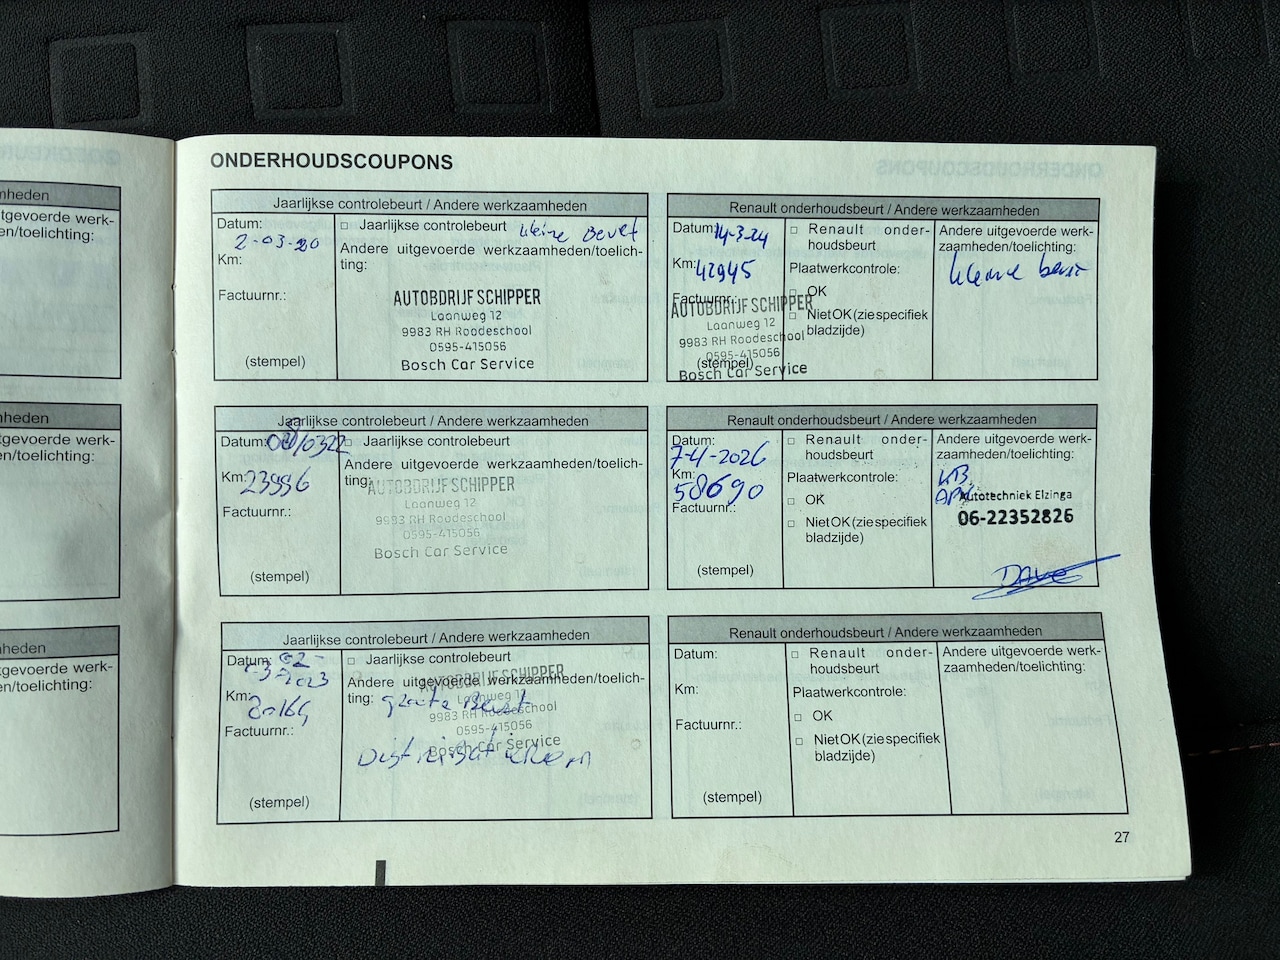 ONDERHOUDSCOUPONS
Jaarlijkse controlebeurt / Andere werkzaamheden
Datum:
2-03-20
Km:
Factuurnr.:
(stempel)
□ Jaarlijkse controlebeurt kleine Beurt
Andere uitgevoerde werkzaamheden/toelich-
ting:
AUTOBDRIJF SCHIPPER
Laanweg 12
9983 RH Roodeschool
0595-415056
Bosch Car Service
Jaarlijkse controlebeurt / Andere werkzaamheden
Datum:
Km: 23996
Factuurnr.:
(stempel)
□ Jaarlijkse controlebeurt
Andere uitgevoerde werkzaamheden/toelich-
ting:
AUTOBDRIJF SCHIPPER
Laanweg 12
9983 RH Roodeschool
0595-415056
Bosch Car Service
Jaarlijkse controlebeurt / Andere werkzaamheden
Datum:
Km:
Factuurnr.:
(stempel)
□ Jaarlijkse controlebeurt
Andere uitgevoerde werkzaamheden/toelich-
ting: grote Beurt
AUTOBDRIJF SCHIPPER
Laanweg 12
9983 RH Roodeschool
0595-415056
Bosch Car Service
Renault onderhoudsbeurt / Andere werkzaamheden
Datum: 14-3-24
Km: 42945
Factuurnr.:
(stempel)
AUTOBDRIJF SCHIPPER
Laanweg 12
9983 RH Roodeschool
0595-415056
Bosch Car Service
□ Renault onder-
houdsbeurt
Plaatwerkcontrole:
□ OK
□ Niet OK (zie specifiek
bladzijde)
Andere uitgevoerde werk-
zaamheden/toelichting:
kleine beurt
Renault onderhoudsbeurt / Andere werkzaamheden
Datum:
7-4-2026
Km:
58690
Factuurnr.:
(stempel)
□ Renault onder-
houdsbeurt
Plaatwerkcontrole:
□ OK
□ Niet OK (zie specifiek
bladzijde)
Andere uitgevoerde werk-
zaamheden/toelichting:
KB
APK
Autotechniek Elzinga
06-22352826
Dave
Renault onderhoudsbeurt / Andere werkzaamheden
Datum:
Km:
Factuurnr.:
(stempel)
□ Renault onder-
houdsbeurt
Plaatwerkcontrole:
□ OK
□ Niet OK (zie specifiek
bladzijde)
Andere uitgevoerde werk-
zaamheden/toelichting:
27